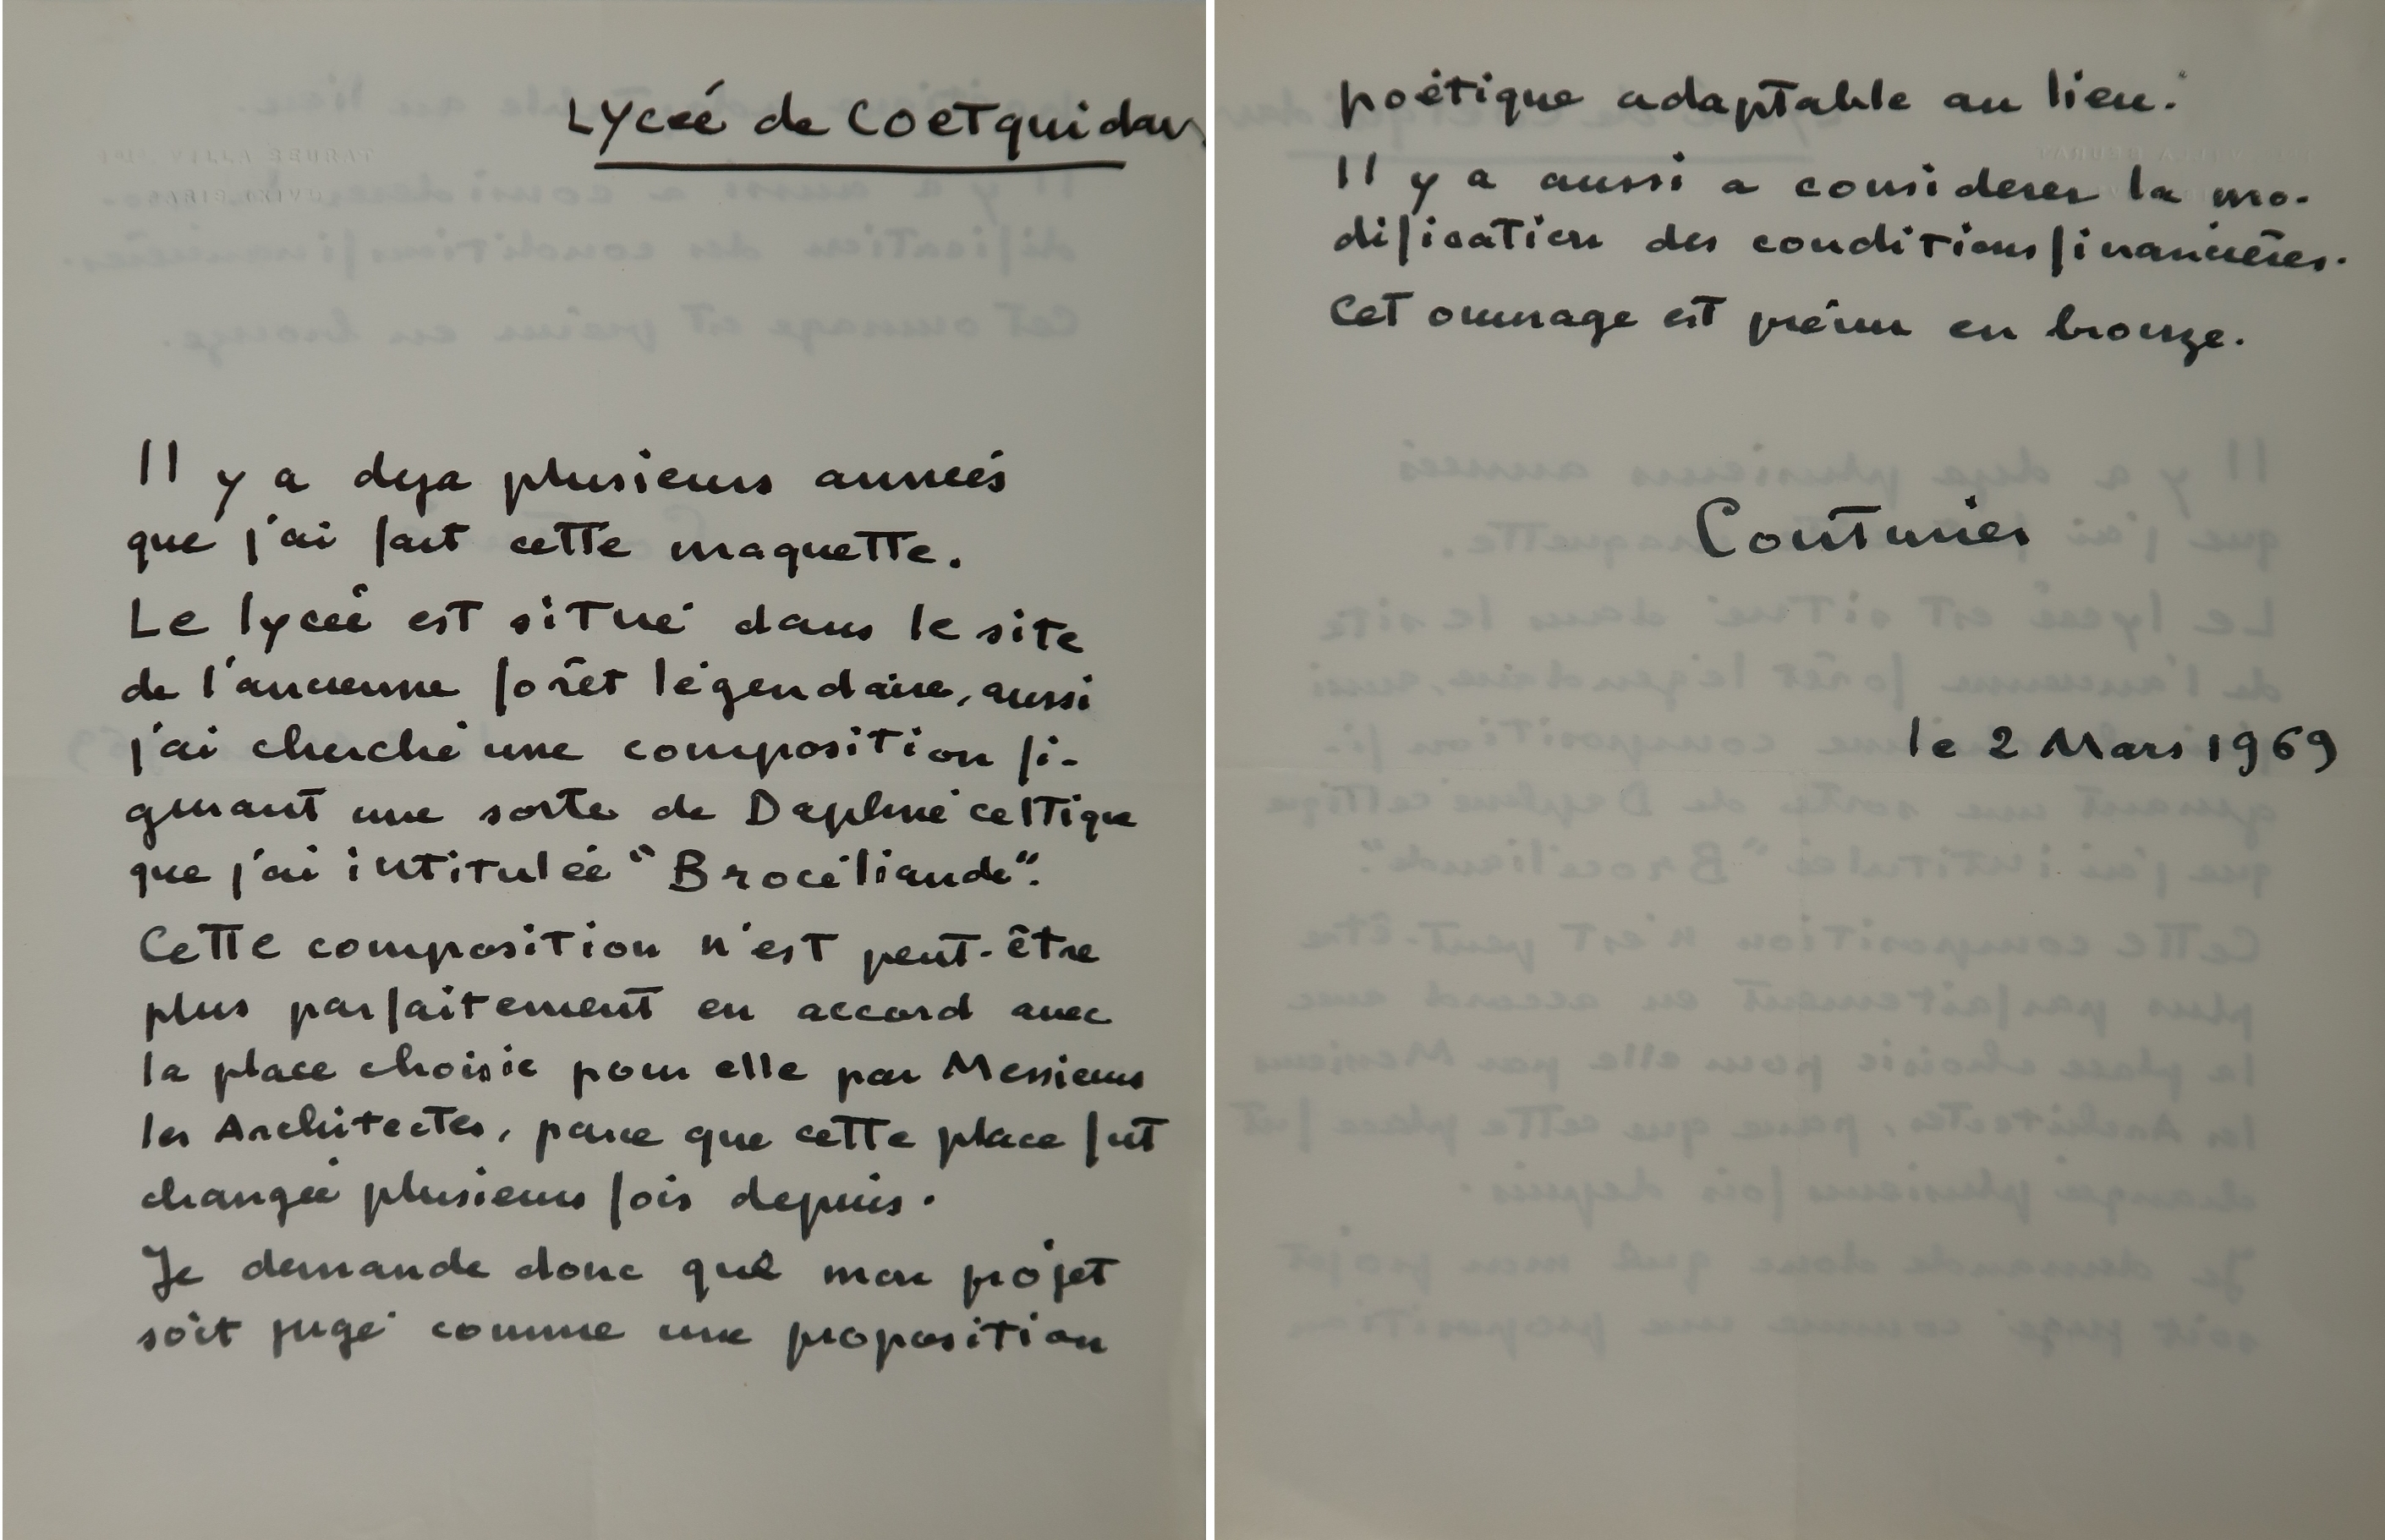 Lycée de Coetquidan
VILLA SEURAT
PARIS XIV
Il y a deja plusieurs années
que j'ai fait cette maquette.
Le lycée est situé dans le site
de l'ancienne forêt légendaire, aussi
j'ai cherché une composition fi-
gurant une sorte de Daphné celtique
que j'ai intitulée "Brocéliande".
Cette composition n'est peut-être
plus parfaitement en accord avec
la place choisie pour elle par Messieurs
les Architectes, parce que cette place fut
changée plusieurs fois depuis.
Je demande donc que mon projet
soit jugé comme une proposition
poétique adaptable au lieu.
Il y a aussi a considerer la mo-
dification des conditions financières.
Cet ouvrage est prévu en bronze.
Couturier
le 2 Mars 1969